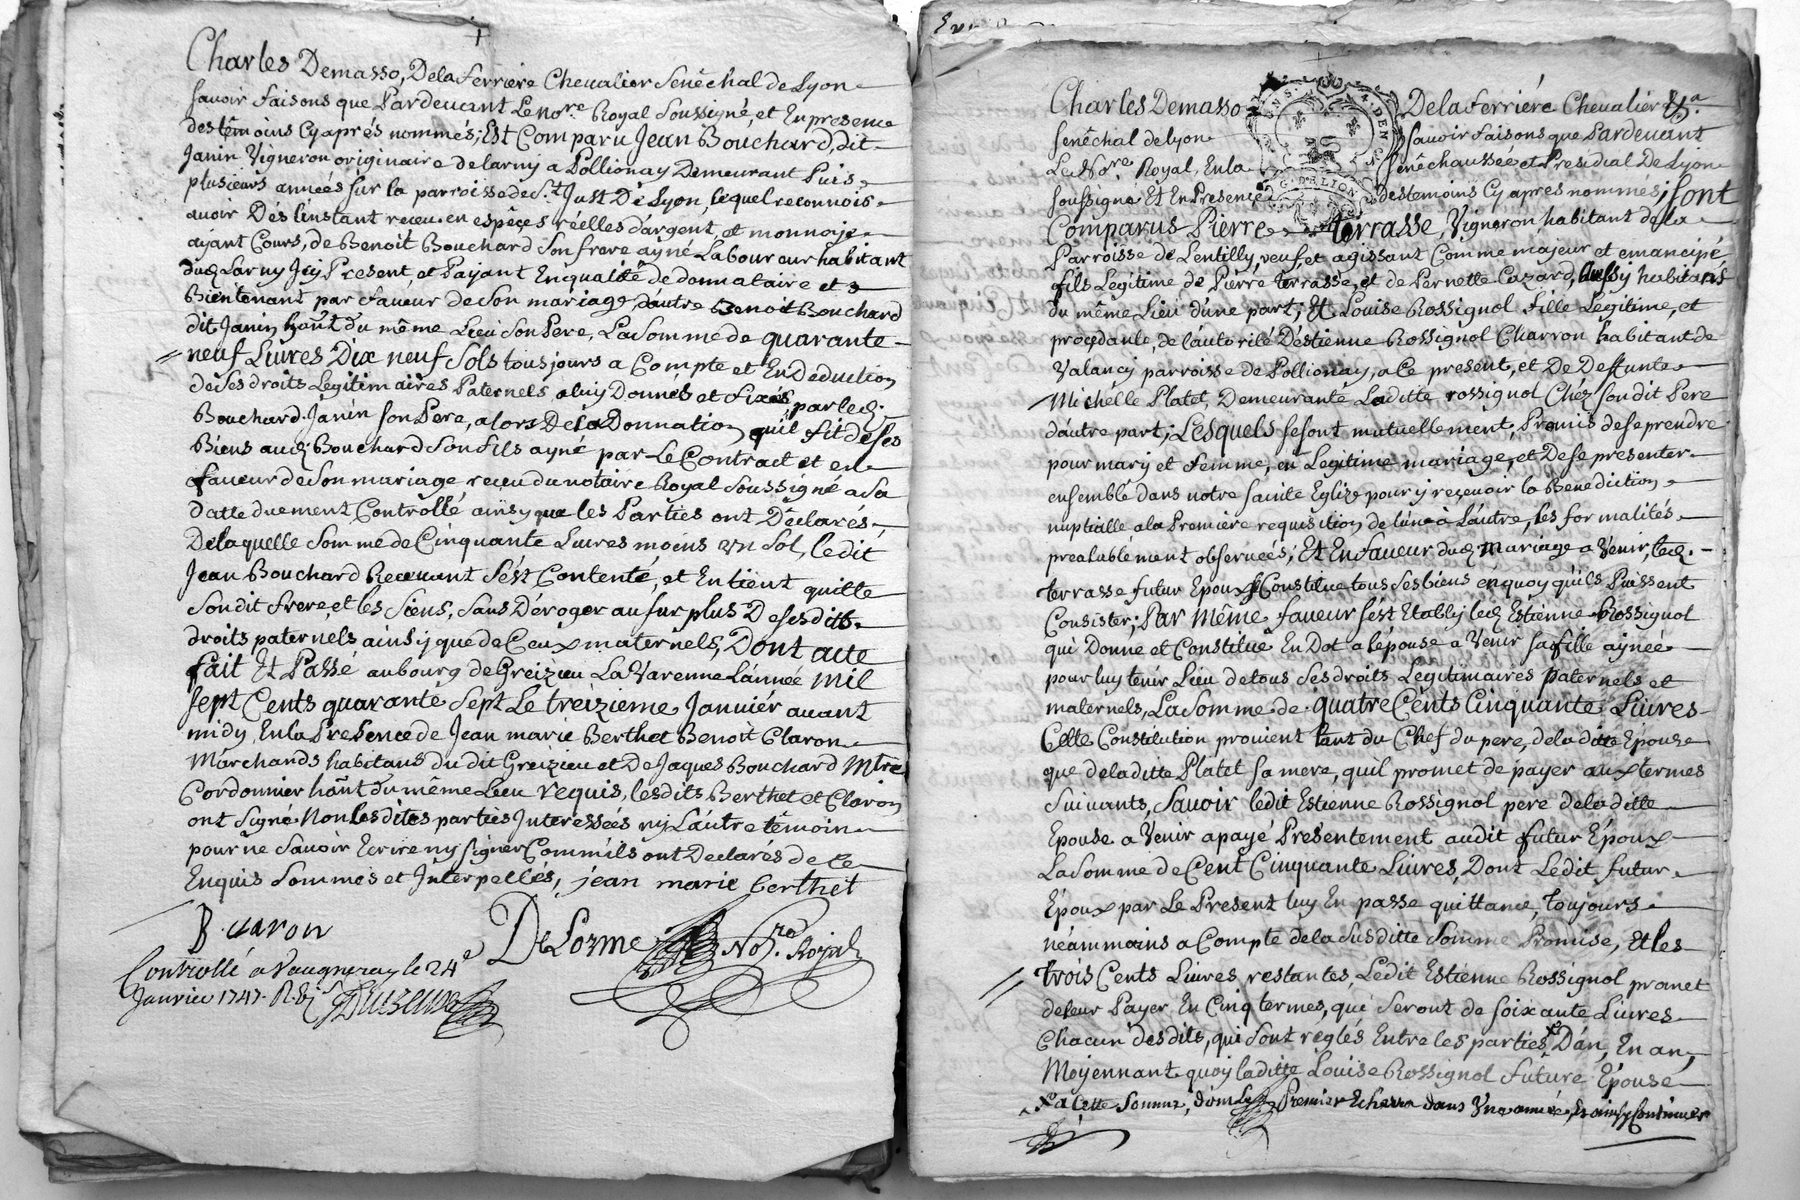 Charles Demasso, Dela ferriere Chevalier Senêchal de Lyon
savoir faisons que Pardevant Le no.re Royal Soussigné, et En presence
des têmoins Cy aprés nommés; Est Comparu Jean Bouchard, dit
Janin Vigneron originaire de larny a Pollionay Demeurant Puis
plusieurs années sur la parroisse de S.t Just De Lyon, lequel reconnois
avoir Dés L'instant receu en espêces réelles d'argent, et monnoie
ayant Cours, de Benoit Bouchard Son frere ayné Laboureur habitant
dud. Larny Icy Present, et Payant En qualité de donnataire et
Bientenant par faveur de Son mariage, dautre Benoit Bouchard
dit Janin hañt du même Lieu Son Pere, La Somme de quarante
neuf Livres Dix neuf Sols tousjours a Compte et En Deduction
de Ses droits Legitimaires Paternels a luy Donnés et fixés par led.
Bouchard Janin son Pere, alors De la Donnation qu'il fit de ses
Biens aud. Bouchard Son fils ayné par Le Contract et en
faveur de Son mariage receu du notaire Royal Soussigné a Sa
datte duement Controllé ainsy que les Parties ont Dêclarés
De laquelle Somme de Cinquante Livres moins un Sol, ledit
Jean Bouchard Recevant S'est Contenté, et En tient quitte
Son dit frere, et les Siens, Sans Déroger au Surplus De Sesdits
droits paternels ainsy que de Ceux maternels, Dont acte
fait Et Passé au bourg de Greizieu La Varenne L'année Mil
Sept Cents quarante Sept Le treizieme Janviér avant
midy, En la Presence de Jean marie Berthet Benoit Claron
Marchands habitans du dit Greizieu et De Jaques Bouchard Mtre
Cordonnier hañt du même Lieu requis, lesdits Berthet et Claron
ont Signé Non lesdites parties Interessées ny L'autre têmoin
pour ne Savoir Ecrire ny signer Comm'ils ont Declarés de ce
Enquis Sommés et Interpellés, jean marie berthet
B. claron
DeLorme No.re Royal
Controllé a Vaugneray le 24e
Janvier 1747. R.
Charles Demasso Dela ferriére Chevalier
Senêchal de Lyon savoir faisons que Pardevant
Le No.re Royal, En la Senêchaussée et Presidial De Lyon
soussigné Et En Presence des temoins Cy apres nommés, sont
Comparus Pierre terrasse, Vigneron, habitant de la
Parroisse de Lentilly, veuf, et agissant Comme majeur et emancipé
fils Legitime de Pierre terrasse, et de Pernette Cazard, Aussy habitans
du même Lieu d'une part; Et Louise Rossignol fille Legitime, et
proçedante, de l'autorité D'éstienne Rossignol Charron habitant de
Valancy parroisse de Pollionay, a Ce present, et De Deffunte
Michelle Platet, Demeurante Laditte rossignol Chéz son dit Pere
d'autre part; Lesquels se sont mutuellement, Promis de se prendre
pour mary et femme, en Legitime mariage, et De se presenter
ensemble dans notre sainte Eglise pour y reçevoir la Benediction
nuptialle a la Premiére requisition de l'une a L'autre, les formalités
prealablement observées; Et En faveur dud. Mariage a Venir, led.
terrasse futur Epoux Constitue tous Ses biens en quoy qu'ils Puissent
Consister; Par Même faveur s'est Etably led. Estienne Rossignol
qui Donne et Constitüe En Dot a l'épouse a Venir sa fille aynée
pour luy tenir Lieu de tous Ses droits Legitimaires paternels et
maternels, La Somme de quatre Cents Cinquante Livres
Cette Constitution provient tant du Chef du pere, de la ditte Epouse
que de la ditte Platet sa mere, qu'il promet de payer aux termes
Suivants, Savoir ledit Estienne Rossignol pere de la ditte
Epouse a Venir a payé Presentement audit futur Epoux
La Somme de Cent Cinquante Livres, Dont Ledit futur
Epoux par Le Present luy En passe quittance, toujours
néammoins a Compte de la Susditte Somme Promise, Et les
trois Cents Livres, restantes, Ledit Estienne Rossignol promet
de leur Payer En Cinq termes, qui Seront de soixante Livres
Chacun desdits, qui sont reglés Entre les parties x D'an, En an,
Moyennant quoy laditte Louise Rossignol future Epouse
x a Cette Somme, dont Le Premier Echerra dans Une année, Et ainsy Continuer